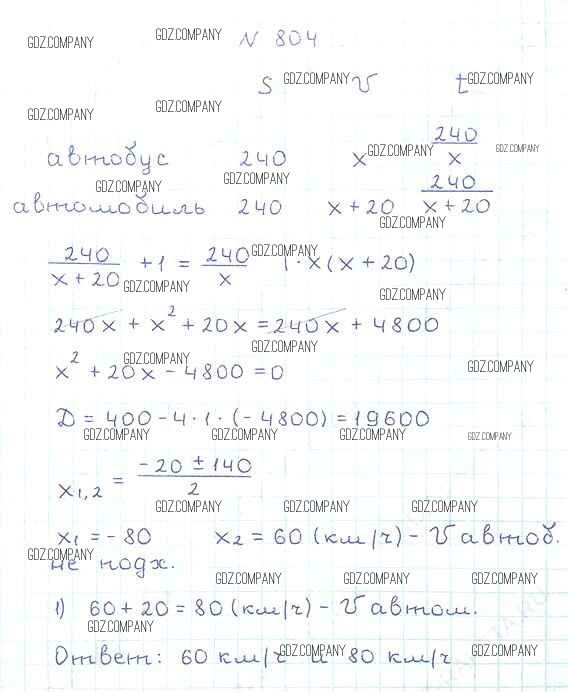 GDZ.COMPANY GDZ.COMPANY N 804
S GDZ.COMPANY V t GDZ.COMPANY
GDZ.COMPANY GDZ.COMPANY
автобус 240 x GDZ.COMPANY 240/x GDZ.COMPANY
GDZ.COMPANY GDZ.COMPANY
автомобиль 240 x + 20 240/(x + 20)
GDZ.COMPANY
240/(x + 20) + 1 = 240/x GDZ.COMPANY | · x (x + 20)
GDZ.COMPANY GDZ.COMPANY
240x + x² + 20x = 240x + 4800
GDZ.COMPANY GDZ.COMPANY
x² + 20x - 4800 = 0 GDZ.COMPANY
D = 400 - 4 · 1 · (- 4800) = 19600
GDZ.COMPANY GDZ.COMPANY GDZ.COMPANY GDZ.COMPANY
x1,2 = (-20 ± 140)/2
GDZ.COMPANY GDZ.COMPANY GDZ.COMPANY
x1 = - 80 x2 = 60 (км/ч) - V автоб.
GDZ.COMPANY
не подх. GDZ.COMPANY GDZ.COMPANY GDZ.COMPANY
1) 60 + 20 = 80 (км/ч) - V автом.
GDZ.COMPANY
Ответ: 60 км/ч и 80 км/ч
GDZ.COMPANY GDZ.COMPANY GDZ.COMPANY